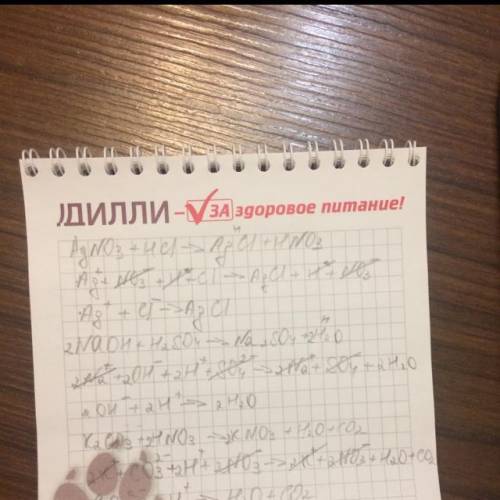 ДИЛЛИ – ЗА здоровое питание!
AgNO₃ + HCl → AgCl + HNO₃
Ag⁺ + NO₃⁻ + H⁺ + Cl⁻ → AgCl + H⁺ + NO₃⁻
Ag⁺ + Cl⁻ → AgCl
2NaOH + H₂SO₄ → Na₂SO₄ + 2H₂O
2Na⁺ + 2OH⁻ + 2H⁺ + SO₄²⁻ → 2Na⁺ + SO₄⁻ + 2H₂O
2OH⁻ + 2H⁺ → 2H₂O
K₂CO₃ + 2HNO₃ → 2KNO₃ + H₂O + CO₂
2K⁺ + CO₃²⁻ + 2H⁺ + 2NO₃⁻ → 2K⁺ + 2NO₃⁻ + H₂O + CO₂
H⁺ → H₂O + CO₂